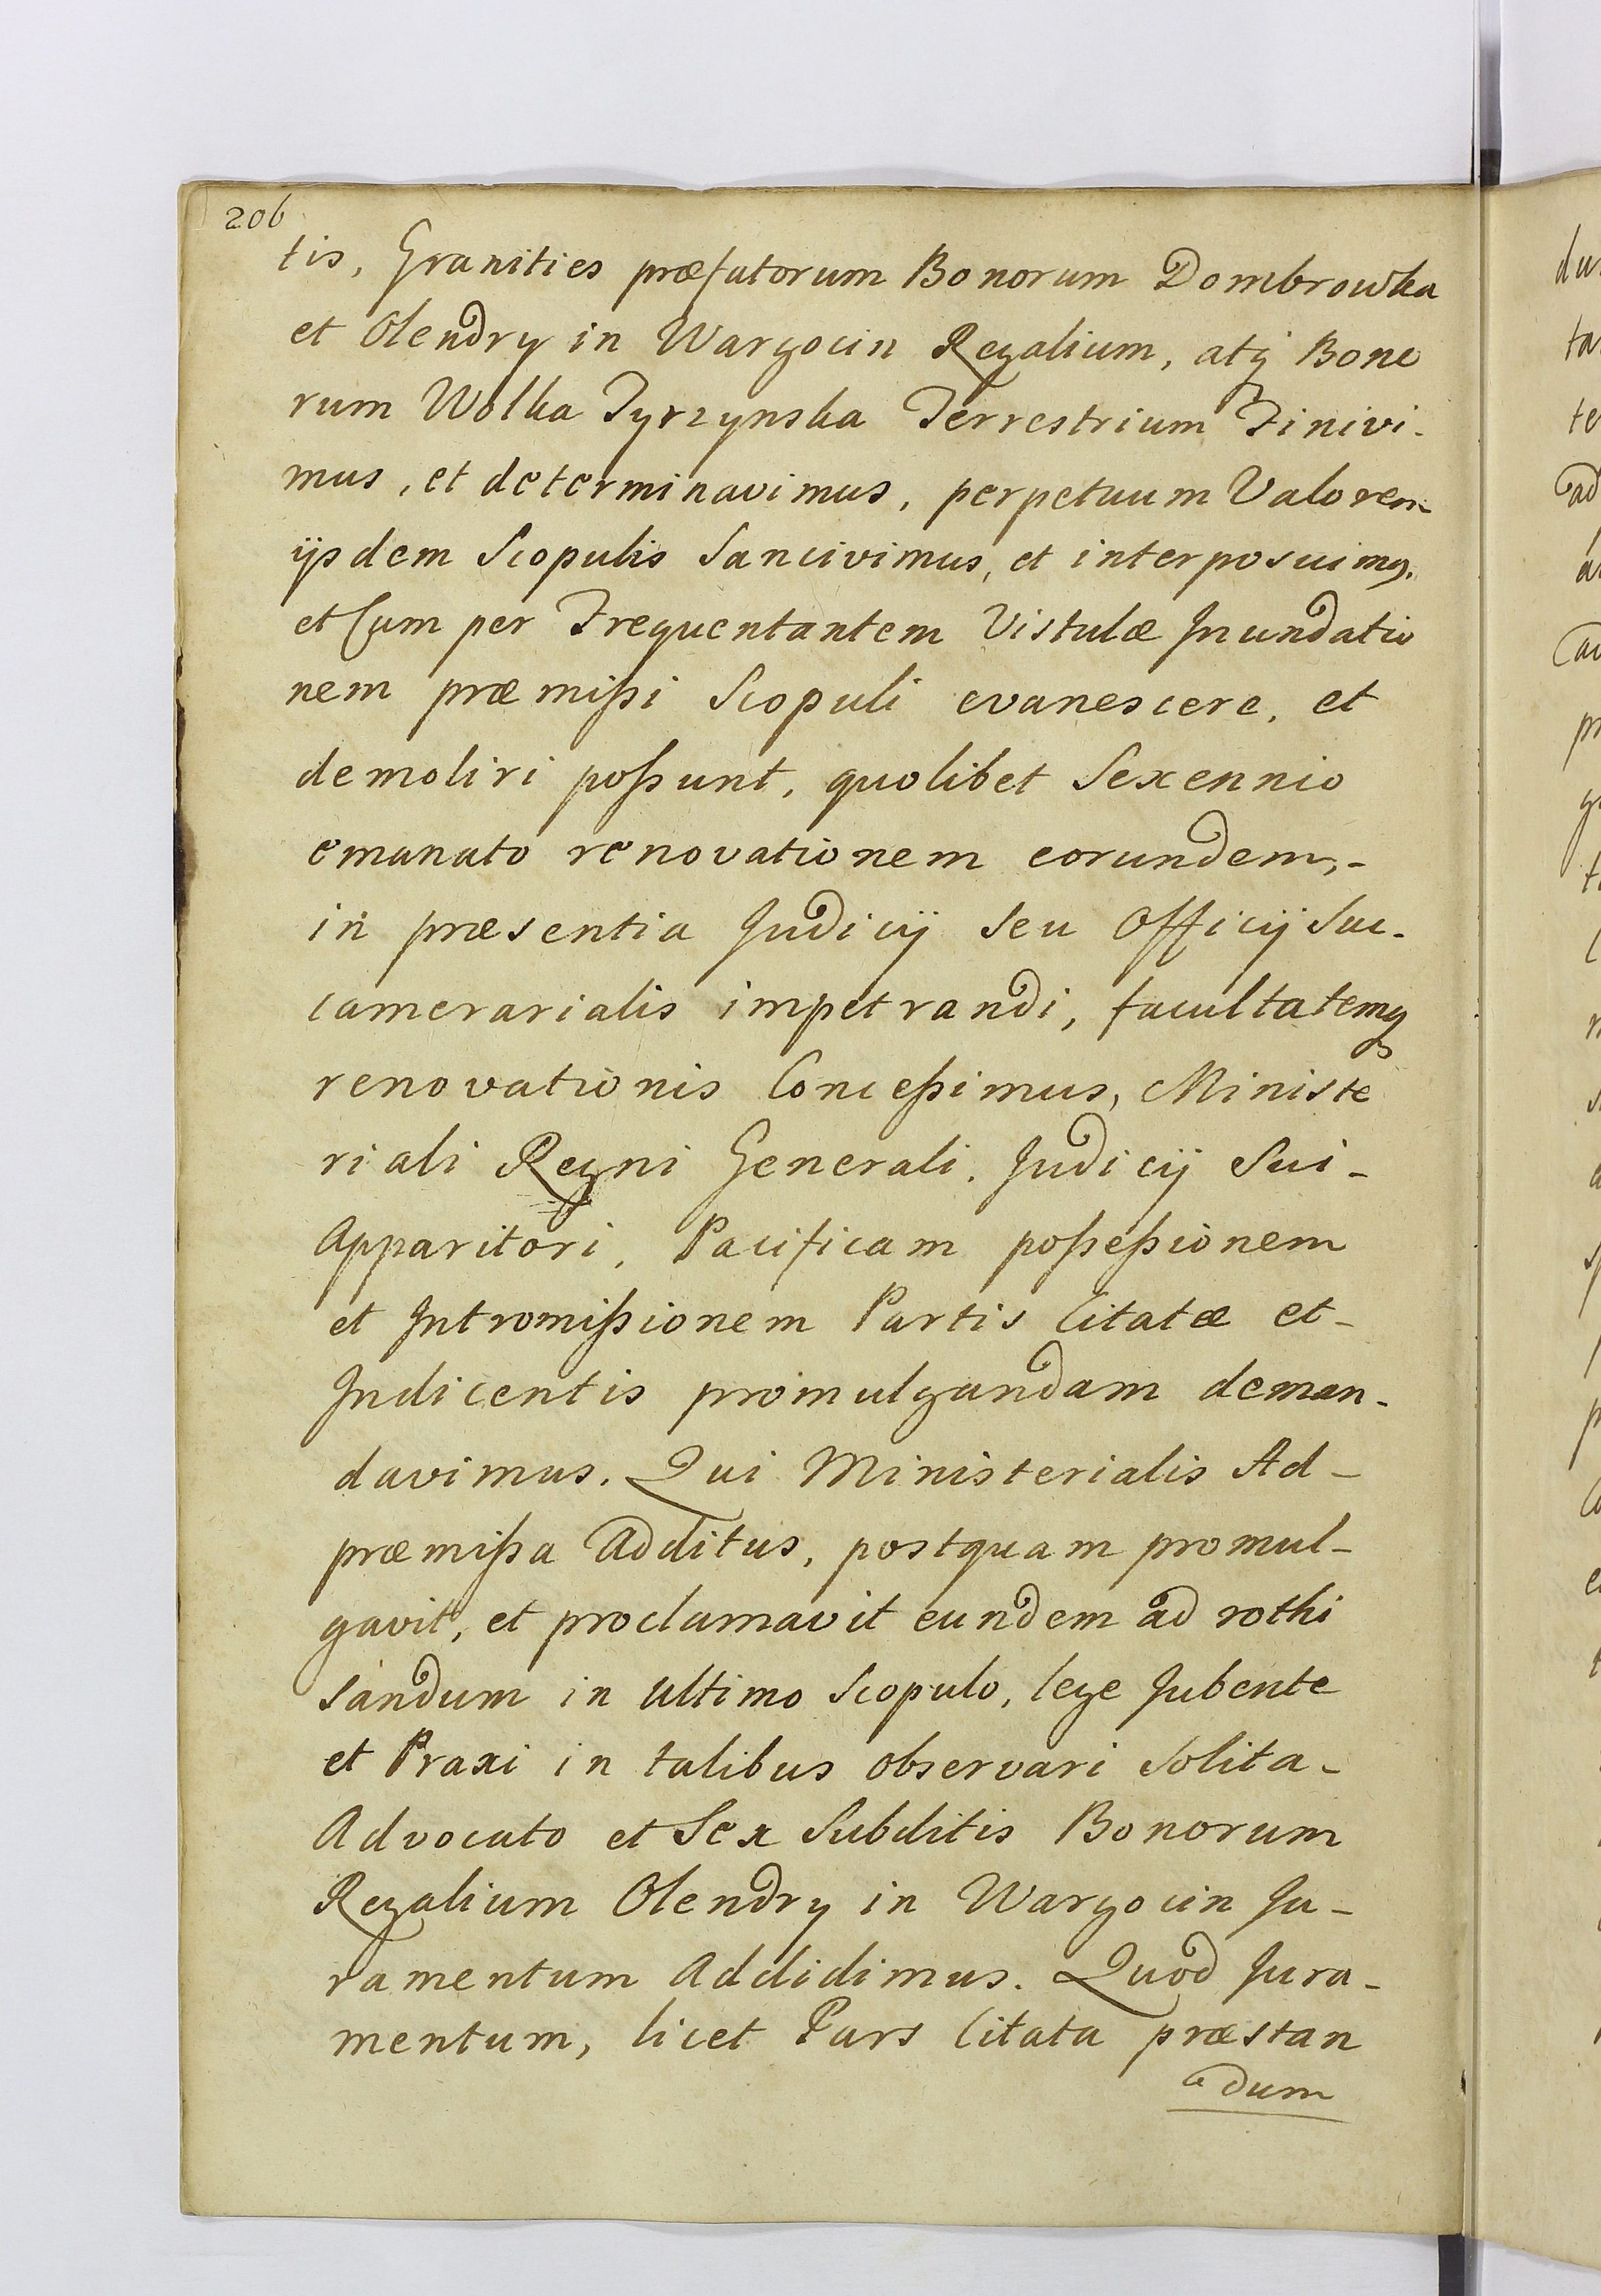 206
tis, Granities præfatorum Bonorum Dombrowka
et Olendry in Wargocin Regalium, atq Bono
rum Wolka Tyrzynska Terrestrium Finivi-
mus, et determinavimus, perpetuum Valorem
ijsdem Scopulis Sancivimus, et interposuimq,
et Cum per Frequentantem Vistulæ Inundatio
nem præmißi Scopuli evanescere, et
demoliri poßunt, quolibet Sexennio
emanato renovationem eorundem,-
in præsentia Judicij seu Officij Suc-
camerarialis impetrandi, facultatemq
renovationis Conceßimus, Ministe
riali Regni Generali. Judicij Sui-
Apparitori, Pacificam poßeßionem
et Intromißionem Partis Citatæ et-
Indicentis promulgandam deman-
davimus. Qui Ministerialis Ad-
præmißa Additus, postquam promul-
gavit, et proclamavit eundem ad rothi
sandum in ultimo Scopulo, lege Jubente
et Praxi in talibus observari solita-
Advocato et Sex Subditis Bonorum
Regalium Olendry in Wargocin Ju-
ramentum Addidimus. Quod Jura-
mentum, licet Pars Citata præstan
dum